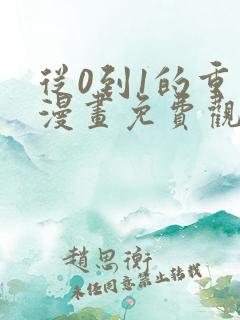 從0到1的重
漫畫免費觀
趙思衡
未經同意禁止轉載